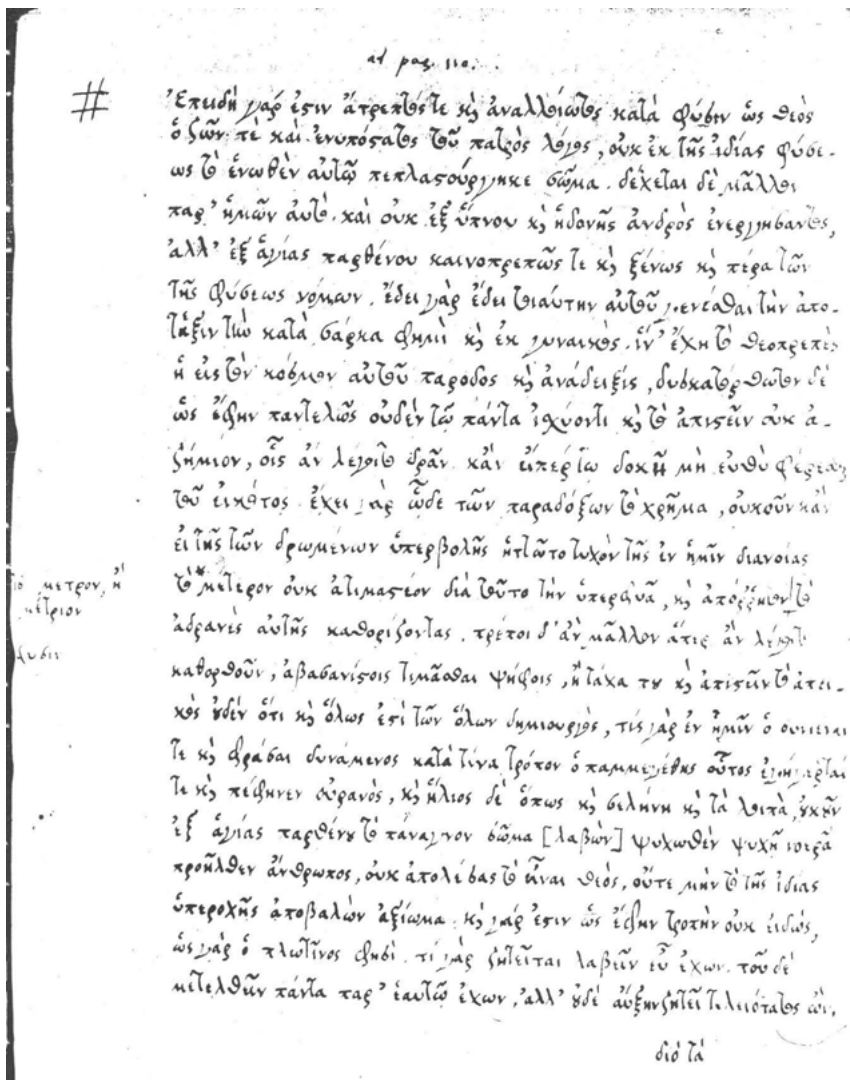 ad pag. 110.
#
Ἐπειδὴ γάρ ἐστιν ἄτρεπτός τε κὴ ἀναλλοίωτος κατὰ φύσιν ὡς θεὸς
ὁ ζῶν τε καὶ ἐνυπόστατος τοῦ πατρὸς λόγος, οὐκ ἐκ τῆς ἰδίας φύσε-
ως τὸ ἑνωθὲν αὐτῷ πεπλαστούργηκε σῶμα. δέχεται δὲ μᾶλλον
παρ' ἡμῶν αὐτό. καὶ οὐκ ἐξ ὕπνου κὴ ἡδονῆς ἀνδρὸς ἐνεργήσαντος,
ἀλλ' ἐξ ἁγίας παρθένου καινοπρεπῶς τε κὴ ξένως κὴ πέρα τῶν
τῆς φύσεως νόμων. ἔδει γὰρ ἔδει τοιαύτην αὐτοῦ γενέσθαι τὴν ἀπο-
τεξιν τὴν κατὰ σάρκα φημὶ κὴ ἐκ γυναικός. ἵν' ἔχῃ τὸ θεοπρεπὲς
ἡ εἰς τὸν κόσμον αὐτοῦ πάροδος κὴ ἀνάδειξις, δυσκατόρθωτον δὲ
ὡς ἔφην παντελῶς οὐδὲν τῷ πάντα ἰσχύοντι κὴ τὸ ἀπιστεῖν οὐκ ἀ-
ζήμιον, οἷς ἂν λέγοιτο δρᾶν. κἂν εἴπερ τῳ δοκῇ μὴ εὐθὺ φέρεσθαι
τοῦ εἰκότος. ἔχει γὰρ ὧδε τῶν παραδόξων τὸ χρῆμα, οὐκοῦν κἂν
εἰ τῆς τῶν δρωμένων ὑπερβολῆς ἡττῷτο τυχὸν τῆς ἐν ἡμῖν διανοίας
τὸ μέτερον οὐκ ἀτιμαστέον διὰ τοῦτο τὴν ὑπερφυᾶ, κὴ ἀπόρρητον τὸ
τὸ μέτρον, ἢ
μέτριον
ἀδρανὲς αὐτῆς καθορίζοντας. πρέποι δ' ἂν μᾶλλον ἅπερ ἂν λέγοιτο
φύσιν
κατορθοῦν, ἀβασανίστοις τιμᾶσθαι ψήφοις, ἢ τάχα που κὴ ἀπιστεῖν τὸ ἀπει-
κὸς οὐδὲν ὅτι κὴ ὅλως ἐστὶ τῶν ὅλων δημιουργός, τίς γὰρ ἐν ἡμῖν ὁ συνιέναι
τε κὴ φράσαι δυνάμενος κατὰ τίνα τρόπον ὁ παμμεγέθης οὗτος ἐγήγερταί
τε κὴ πέφηνεν οὐρανός, κὴ ἥλιος δὲ ὅπως κὴ σελήνη κὴ τὰ λοιπά, οὐκοῦν
ἐξ ἁγίας παρθένου τὸ πάναγνον σῶμα [λαβὼν] ψυχωθὲν ψυχῇ νοερᾷ
προῆλθεν ἄνθρωπος, οὐκ ἀπολέσας τὸ εἶναι θεός, οὔτε μὴν τὸ τῆς ἰδίας
ὑπεροχῆς ἀποβαλὼν ἀξίωμα. κὴ γάρ ἐστιν ὡς ἔφην τροπὴν οὐκ εἰδώς,
ὡς γὰρ ὁ πλωτῖνος φησί. τί γὰρ ζητεῖται λαβεῖν εὖ ἔχων. τοῦ δὲ
μετελθεῖν πάντα παρ' ἑαυτῷ ἔχων, ἀλλ' οὐδὲ αὔξην ζητεῖ τελειότατος ὤν,
διὸ τὰ